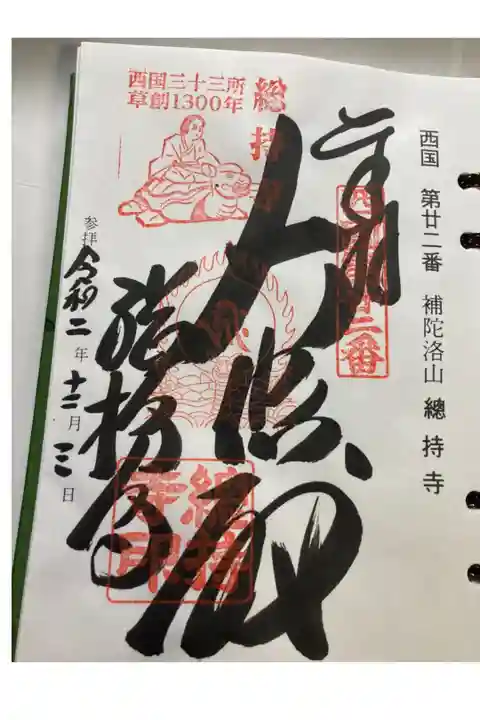 西国 第廿二番 補陀洛山 總持寺
西国三十三所
草創1300年
総持
大悲殿
総持寺
参拝 令和二年十二月三日
總持
寺印